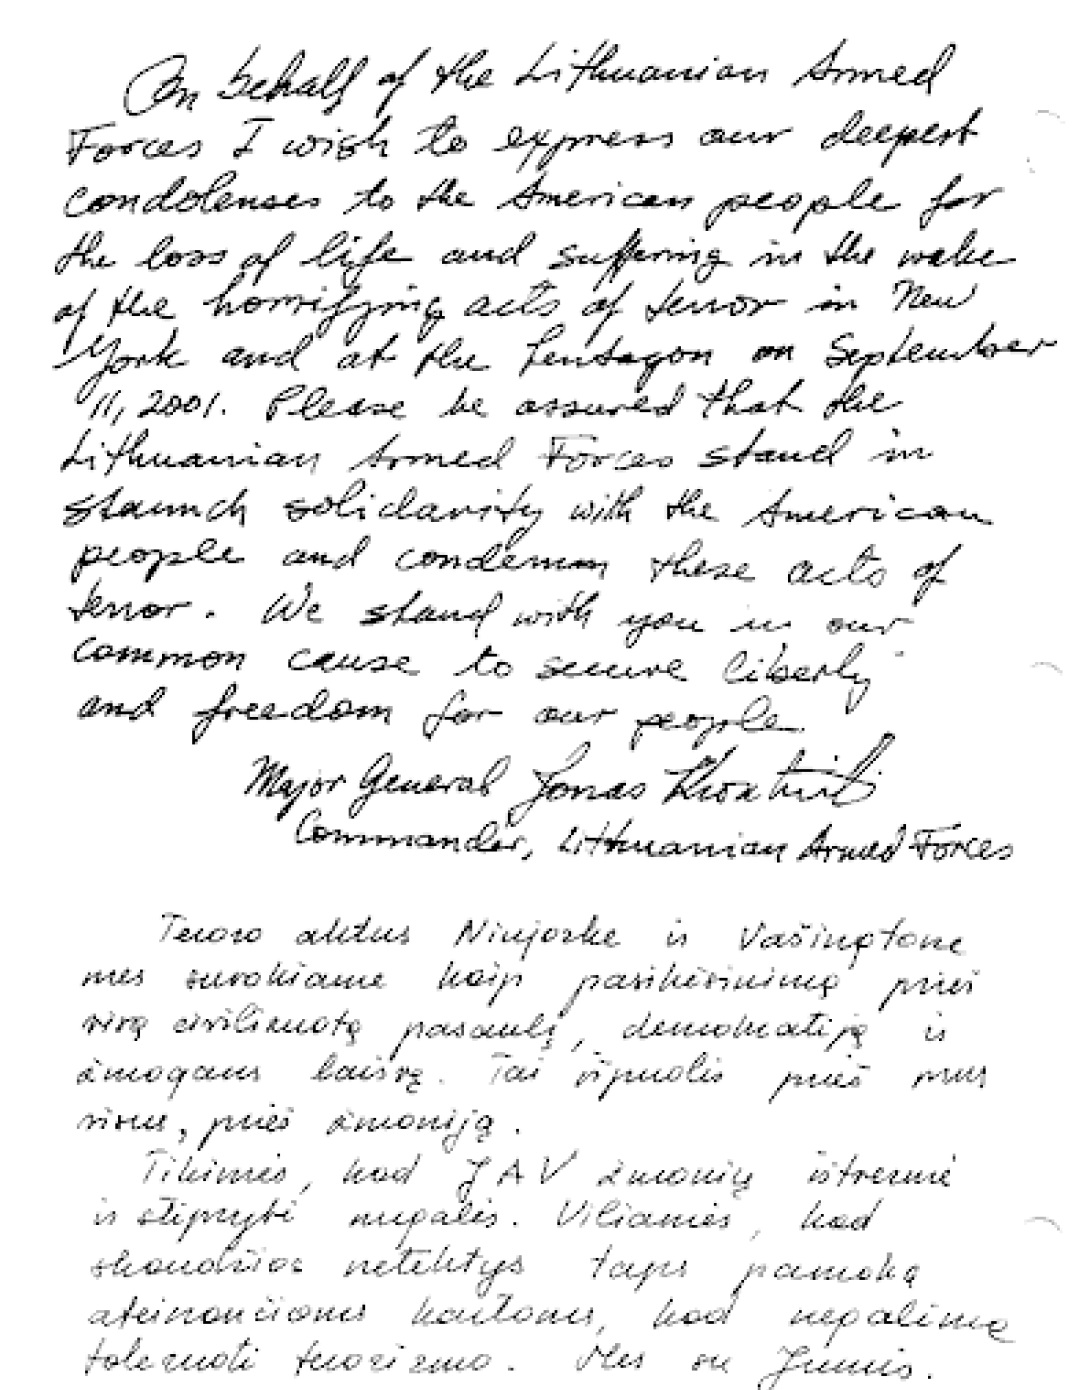 On behalf of the Lithuanian Armed
Forces I wish to express our deepest
condolenses to the American people for
the loss of life and suffering in the wake
of the horrifying acts of terror in New
York and at the Pentagon on September
11, 2001. Please be assured that the
Lithuanian Armed Forces stand in
staunch solidarity with the American
people and condemn these acts of
terror. We stand with you in our
common cause to secure liberty
and freedom for our people.
Major General Jonas
Commander, Lithuanian Armed Forces
Teroro aktus Niujorke ir Vašingtone
mes suvokiame kaip pasikėsinimą prieš
visą civilizuotą pasaulį, demokratiją ir
žmogaus laisvę. Tai išpuolis prieš mus
visus, prieš žmoniją.
Tikimės, kad JAV žmonių ištvermė
ir stiprybė nugalės. Viliamės, kad
skaudžios netektys taps pamoka
ateinančioms kartoms, kad negalima
toleruoti terorizmo. Mes su Jumis.